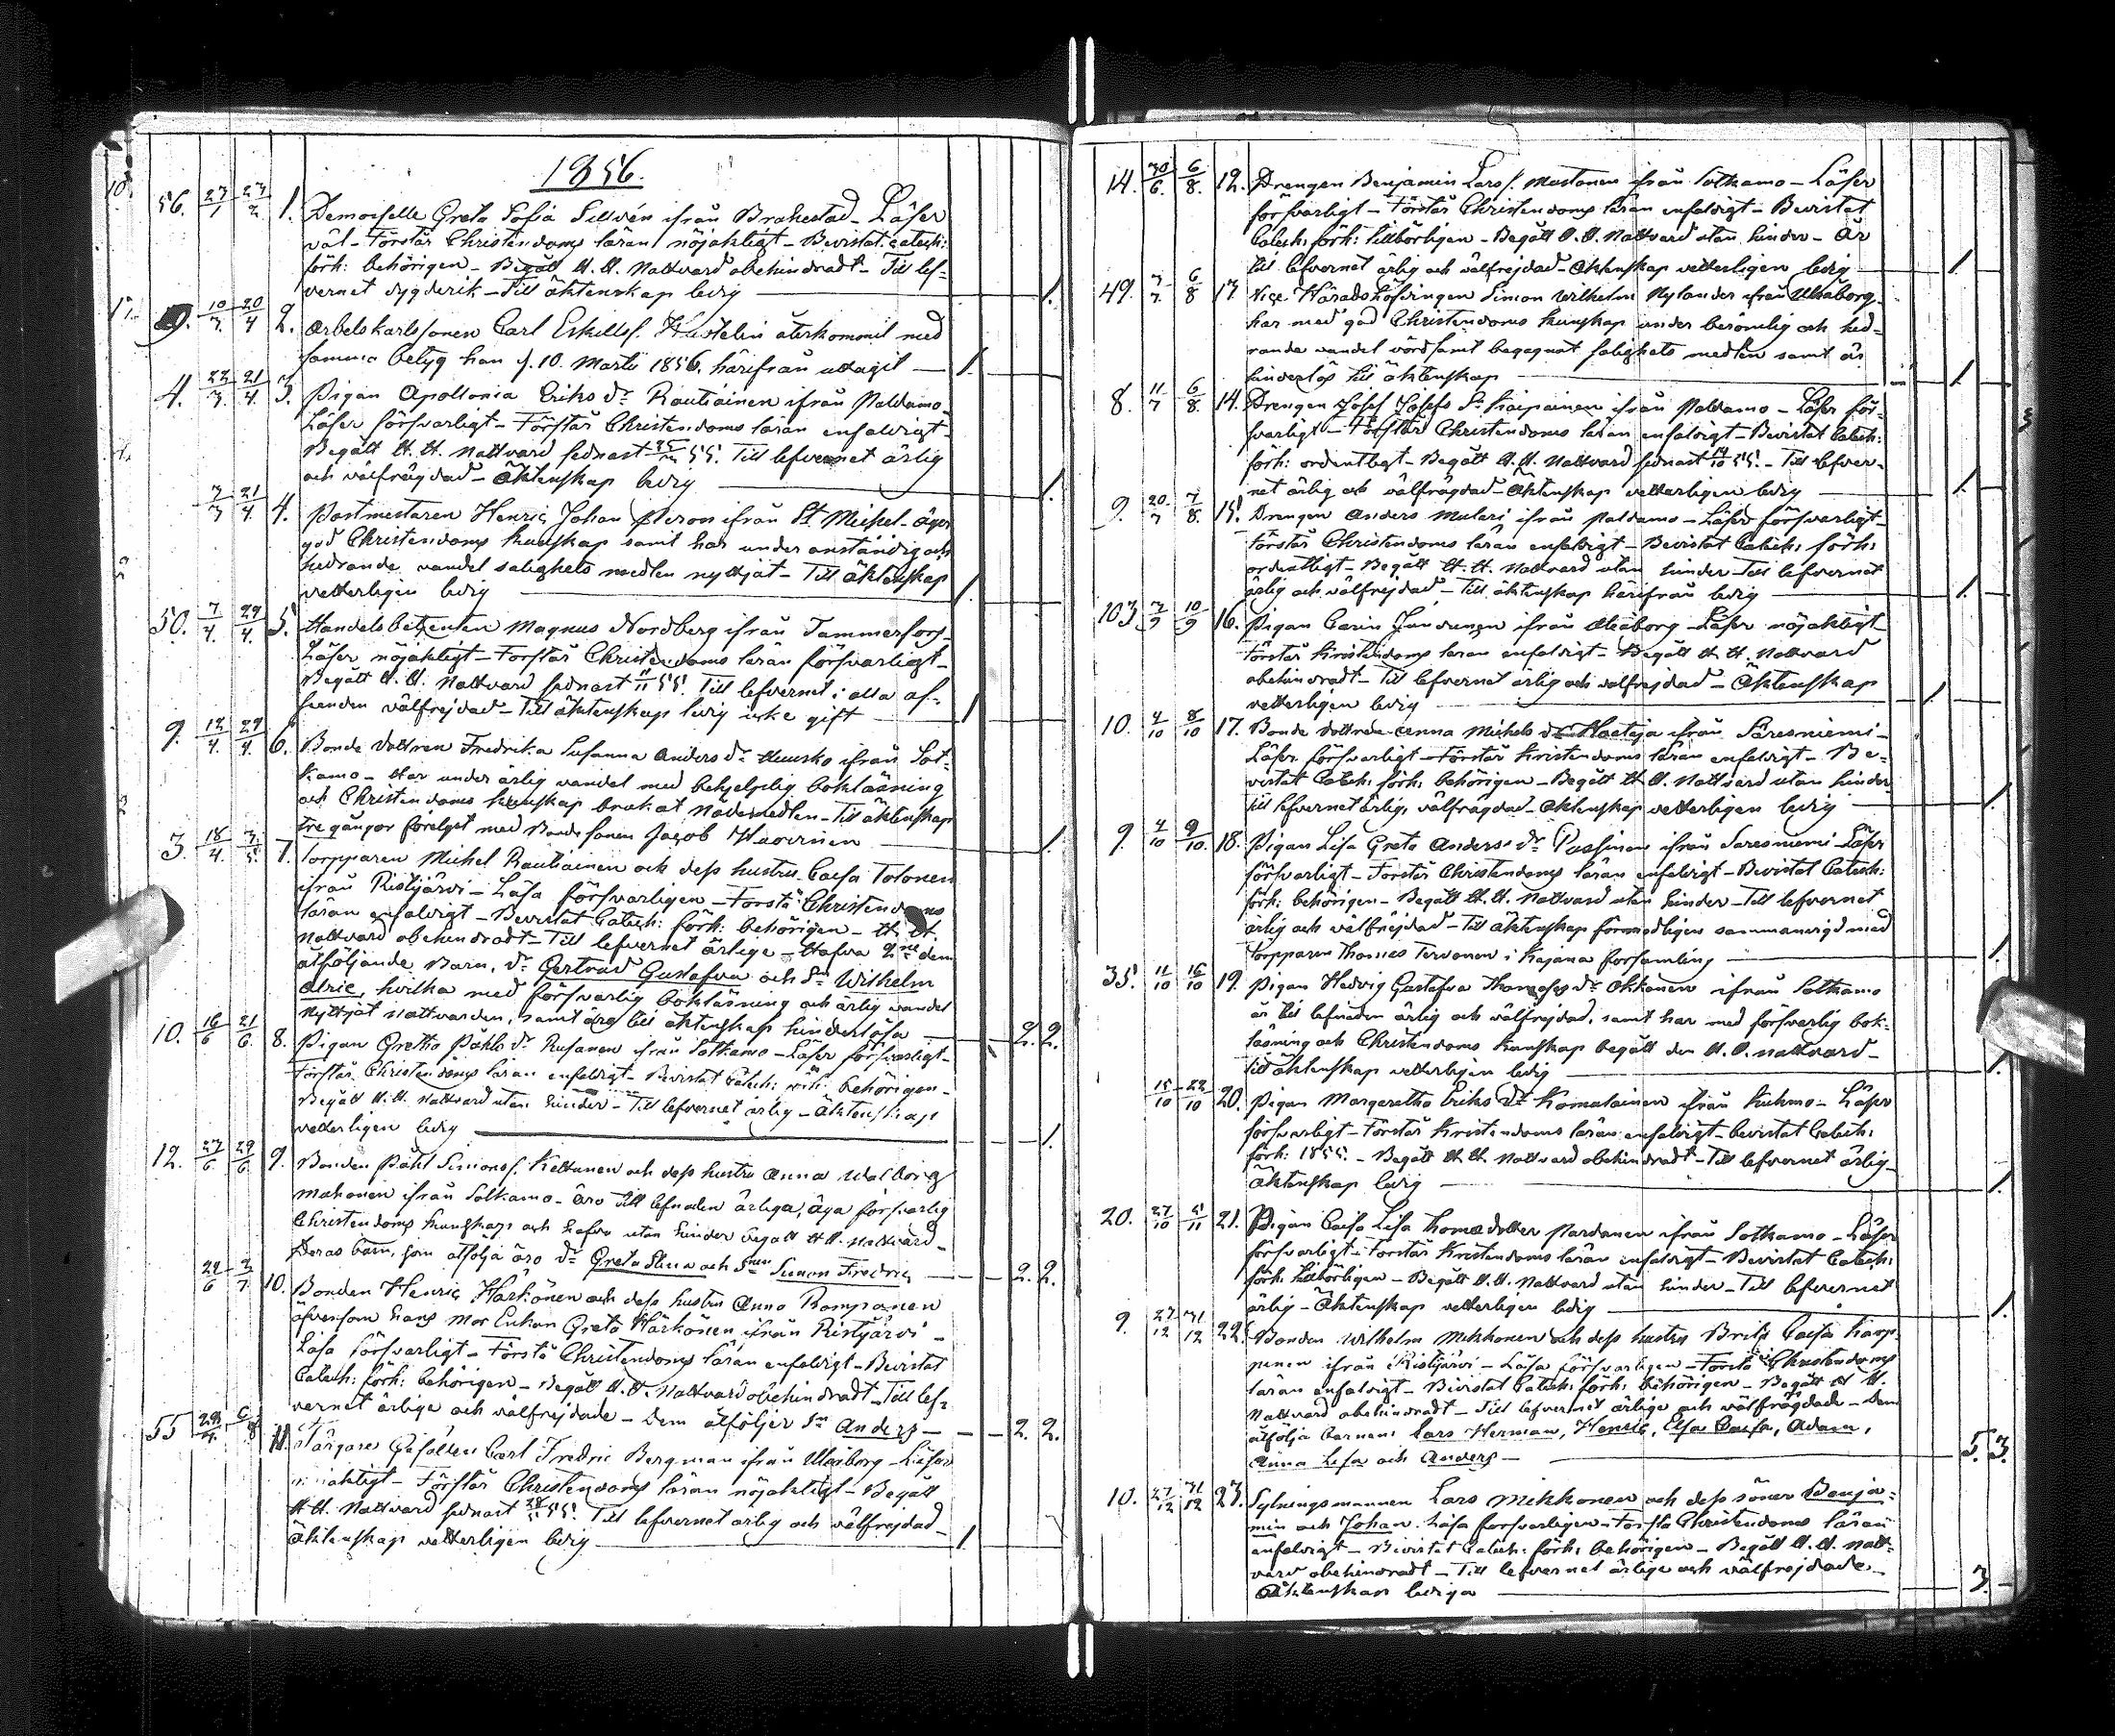 1856.
56. 27/1 27/2 1. Demoiselle Greta Sofia Sillvén ifrån Brahestad – Läser
väl – Förstår Christendoms läran nöjaktigt – Bevistat Catech:
förh: behörigen – Begått H. H. Nattvard obehindradt – Till lef-
vernet dygderik – Till äktenskap ledig 1.
9. 10/3 20/4 2. Arbetskarlssonen Carl Eskilss. återkommit med
samma betyg han d. 10. Martii 1856. härifrån uttagit 1.
4. 22/3. 21/4. 3. Pigan Apollonia Eriks dr Rautiainen ifrån Paldamo –
Läser försvarligt – Förstår Christendoms läran enfaldigt –
Begått H. H. Nattvard sednast 55. Till lefvernet ärlig
och välfrägdad – Äktenskap ledig 1.
3/3 21/4. 4. Postmestaren Henric Johan Piron ifrån St Michel – äger
god Christendoms kunskap samt har under anständig och
hedrande vandel salighets medlen nyttjat – Till äktenskap
vetterligen ledig 1.
50. 7/4. 29/4. 5. Handelsbetjenten Magnus Nordberg ifrån Tammerfors –
Läser nöjaktigt – Förstår Christendoms läran försvarligt –
Begått H. H. Nattvard sednast 11/11 55. Till lefvernet i alla af-
seenden välfrejdad – Till äktenskap ledig icke gift 1
9. 12/4. 29/4. 6. Bonde dottren Fredrika Susanna Anders dr Huusko ifrån Sot-
kamo – Har under ärlig vandel med behjelplig bokläsning
och Christendoms kunskap brukat Nådemedlen – Till äktenskap
tre gångor förelyst med Bondesonen Jacob Huovinen 1.
3. 18/4. 3/5. 7. Torpparen Michel Rautiainen och dess hustru Caisa Tolonen
ifrån Ristijärvi – Läsa försvarligen – Förstå Christendoms
läran enfaldigt – Bevistat Catech: förh: behörigen – H. H.
Nattvard obehindradt – Till lefvernet ärlige – Hafva 2ne dem
åtföljande Barn, dr Gertrud Gustafva och Sn Wilhelm
Alric, hvilka med försvarlig bokläsning och ärlig vandel
nyttjat Nattvarden, samt äro till äktenskap hinderlösa 2. 2.
10. 16/6 21/6. 8. Pigan Gretha Påhls dr Rusanen ifrån Sotkamo – Läser försvarligt –
Förstår Christendoms läran enfaldigt – Bevistat Catech: förh: behörigen –
Begått H. H. Nattvard utan hinder – Till lefvernet ärlig – Äktenskap
vetterligen ledig 1.
12. 27/6 29/6. 9. Bonden Påhl Simons. Keltanen och dess hustru Anna Walborg
Mahonen ifrån Sotkamo – äro Till lefnaden ärliga, äga försvarlig
Christendoms kunskap och hafva utan hinder begått H. H. Nattvard –
Deras barn, som åtfölja äro dr Greta Stina och Snen Simon Fredric 2. 2.
22/6 2/7 10. Bonden Henric Härkönen och dess hustru Anna Romppanen
äfvensom hans Mor Enkan Greta Härkönen ifrån Ristijärvi –
Läsa försvarligt – Förstå Christendoms läran enfaldigt – Bevistat
Catech: förh: behörigen – Begått H. H. Nattvard obehindradt – Till lef-
vernet ärlige och välfrejdade – Dem åtföljer Sn Anders 2. 2.
55 29/4. 6/8 11. Färgare Gesällen Carl Fredric Bergman ifrån Uleåborg – Läser
nöjaktigt – Förstår Christendoms läran nöjaktigt – Begått
H. H. Nattvard sednast 55. Till lefvernet ärlig och välfrejdad –
Äktenskap vetterligen ledig 1.
14. 30/6. 6/8. 12. Drengen Benjamin Lars s. Mustonen ifrån Sotkamo – Läser
försvarligt – Förstår Christendoms läran enfaldigt – Bevistat
Catech: förh: tillbörligen – Begått H. H. Nattvard utan hinder – Är
till lefvernet ärlig och välfrejdad – Äktenskap vetterligen ledig 1.
49. 3/7 6/8 13 Vice Häradshöfdingen Simon Wilhelm Nylander ifrån Uleåborg –
har med god Christendoms kunskap under berömlig och hed-
rande vandel vördsamt begagnat salighets medlen samt är
hinderlös till äktenskap 1.
8. 11/7 6/8. 14. Drengen Josef Josefs Sn Karpainen ifrån Paldamo – Läser för-
svarligt – Förstår Christendoms läran enfaldigt – Bevistat Catech:
förh: ordentligt – Begått H. H. Nattvard sednast 14/10 55. – Till lefver-
net ärlig och välfrägdad – Äktenskap vetterligen ledig 1.
9. 20/7 7/8. 15. Drengen Anders Mulari ifrån Paldamo – Läser försvarligt –
Förstår Christendoms läran enfaldigt – Bevistat Catech: förh:
ordentligt – Begått H. H. Nattvard utan hinder – Till lefvernet
ärlig och välfrejdad – Till äktenskap härifrån ledig 1.
103 3/9 10/9 16. Pigan Carin ifrån Uleåborg – Läser nöjaktigt –
Förstår Kristendoms läran enfaldigt – Begått H. H. Nattvard
obehindradt – Till lefvernet ärlig och välfrejdad – Äktenskap
vetterligen ledig 1.
10. 4/10 8/10 17. Bonde dottren Anna Michels dr Haataja ifrån Säresniemi –
Läser försvarligt – Förstår Kristendoms läran enfaldigt – Be-
vistat Catech: förh: behörigen – Begått H. H. Nattvard utan hinder
till lefvernet ärlig, välfrägdad – Äktenskap vetterligen ledig 1.
9. 4/10 9/10. 18. Pigan Lisa Greta Anders dr Passinen ifrån Säresniemi – Läser
försvarligt – Förstår Christendoms läran enfaldigt – Bevistat Catech:
förh: behörigen – Begått H. H. Nattvard utan hinder – Till lefvernet
ärlig och välfrejdad – Till äktenskap förmodligen sammanvigd med
Torpparen Thomas Tervonen i Kajana församling 1.
35. 11/10 16/10 19. Pigan Hedvig Gustafva Thomasdr Okkonen ifrån Sotkamo
är till lefnaden ärlig och välfrejdad, samt har med försvarlig bok-
läsning och Christendoms kunskap begått den H. H. Nattvard –
Till äktenskap vetterligen ledig 1.
15/10 22/10 20. Pigan Margaretha Eriks dr Komulainen ifrån Kuhmo – Läser
försvarligt – Förstår Kristendoms läran enfaldigt – bevistat Catech:
förh: 1855. – Begått H. H. Nattvard obehindradt – Till lefvernet ärlig –
Äktenskap ledig 1.
20. 27/10 5/11 21. Pigan Caisa Lisa Thomædotter Pardanen ifrån Sotkamo – Läser
försvarligt – Förstår Kristendoms läran enfaldigt – Bevistat Catech:
förh: tillbörligen – Begått H. H. Nattvard utan hinder – Till lefvernet
ärlig – Äktenskap vetterligen ledig 1.
9. 27/12 31/12 22. Bonden Wilhelm Mikkonen och dess hustru Brita Caisa Karp-
pinen ifrån Ristijärvi – Läsa försvarligen – Förstå Christendoms
läran enfaldigt – Bevistat Catech: förh: behörigen – Begått H. H.
Nattvard obehindradt – Till lefvernet ärlige och välfrägdade – Dem
åtfölja barnen: Lars Herman, Henric, Elsa Caisa, Adam,
Anna Lisa och Anders 5. 3.
10. 27/12 31/12 23. Sytningsmannen Lars Mikkonen och dess söner Benja-
min och Johan. Läsa försvarligen – Förstå Christendoms läran
enfaldigt – Bevistat Catech: förh: behörigen – Begått H. H. Natt-
vard obehindradt – Till lefvernet ärlige och välfrejdade –
Äktenskap lediga 3